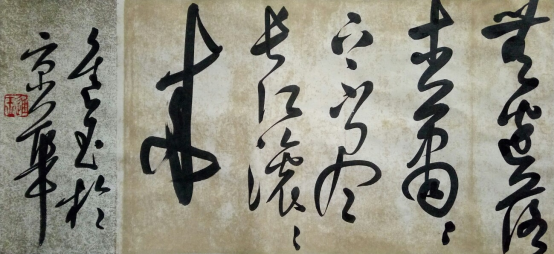 無邊落
木蕭〻
下不盡
長江滾〻
來
玉於
京華